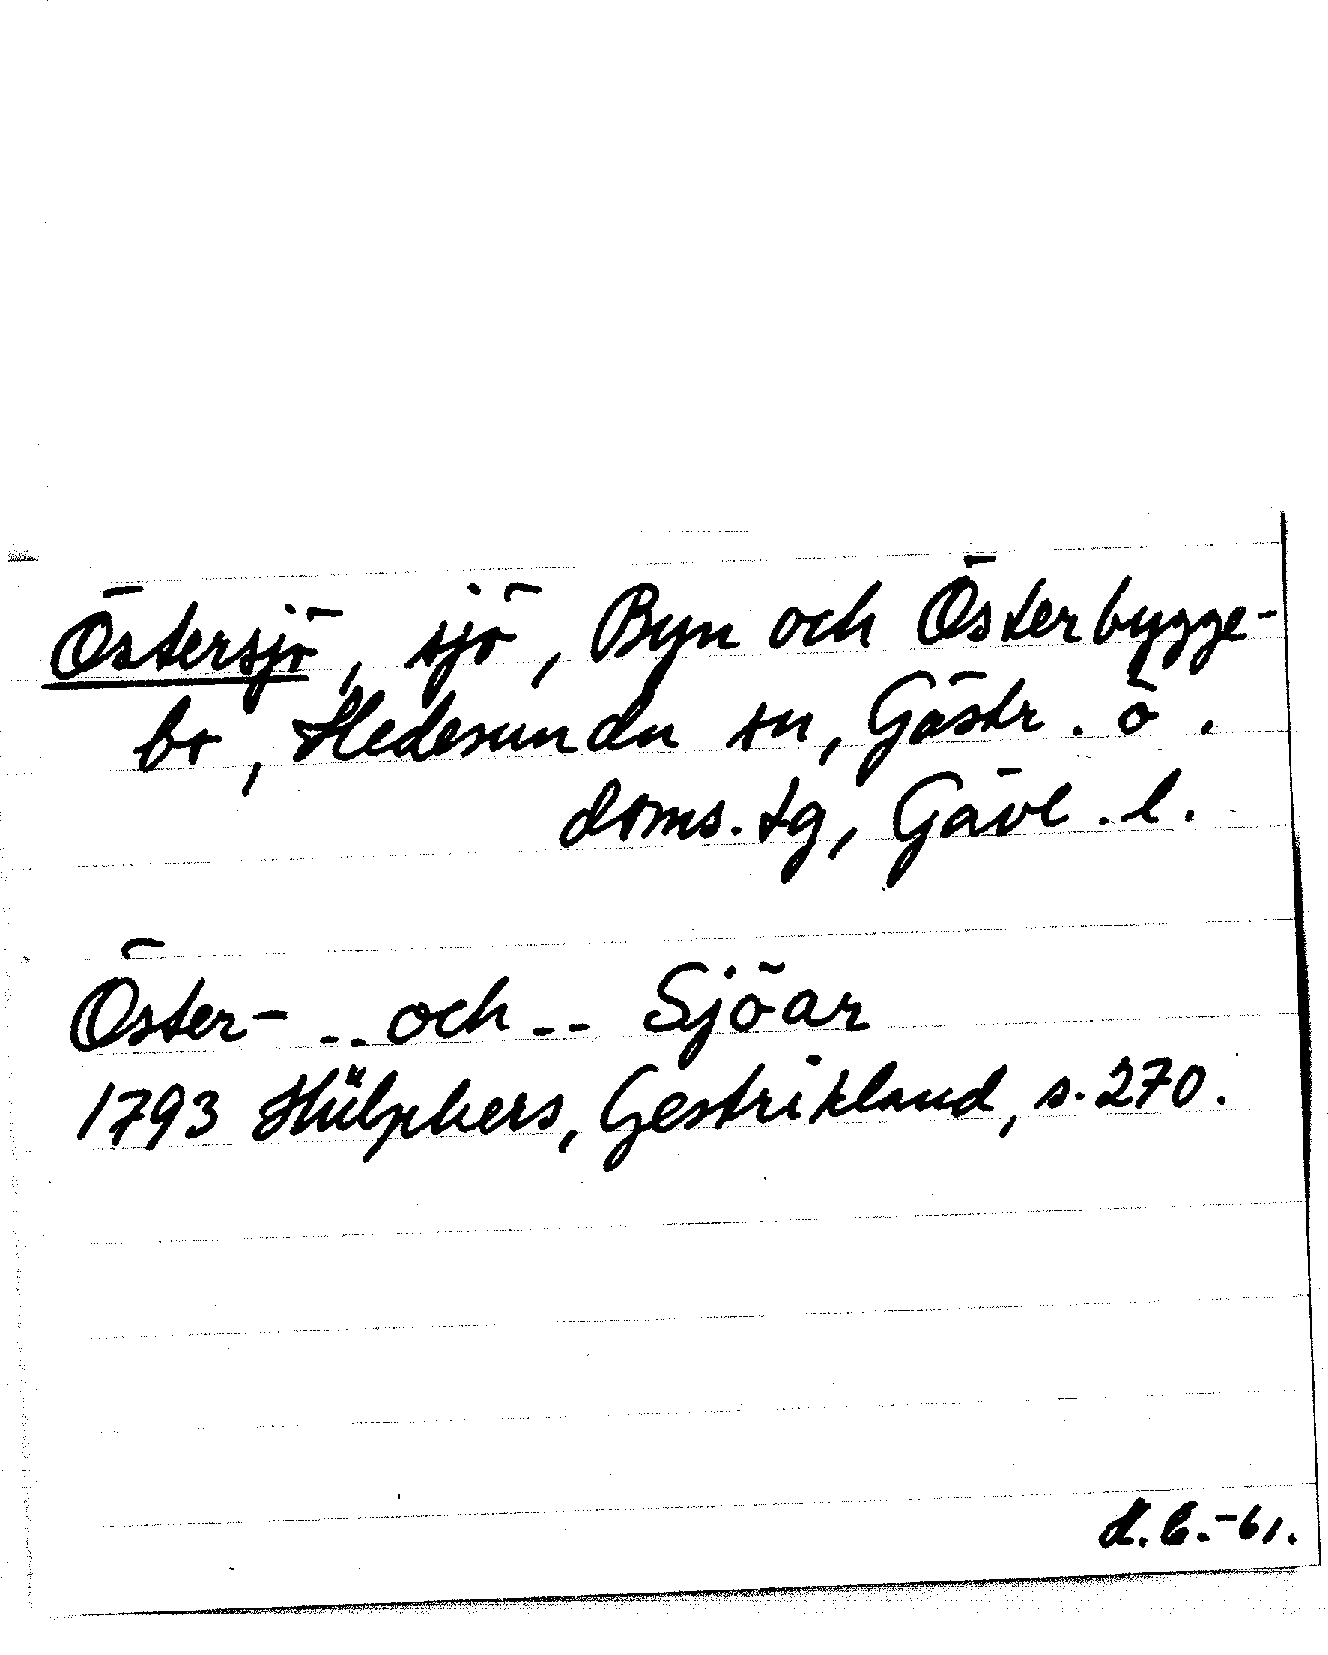 Östersjö, sjö, Byn och Österbygge-
bo, Hedesunda sn, Gästr. ö.
doms.tg, Gävl. l.
Öster- -- och -- Sjöar
1793 Hülphers, Gestrikland, s. 270.
-61.